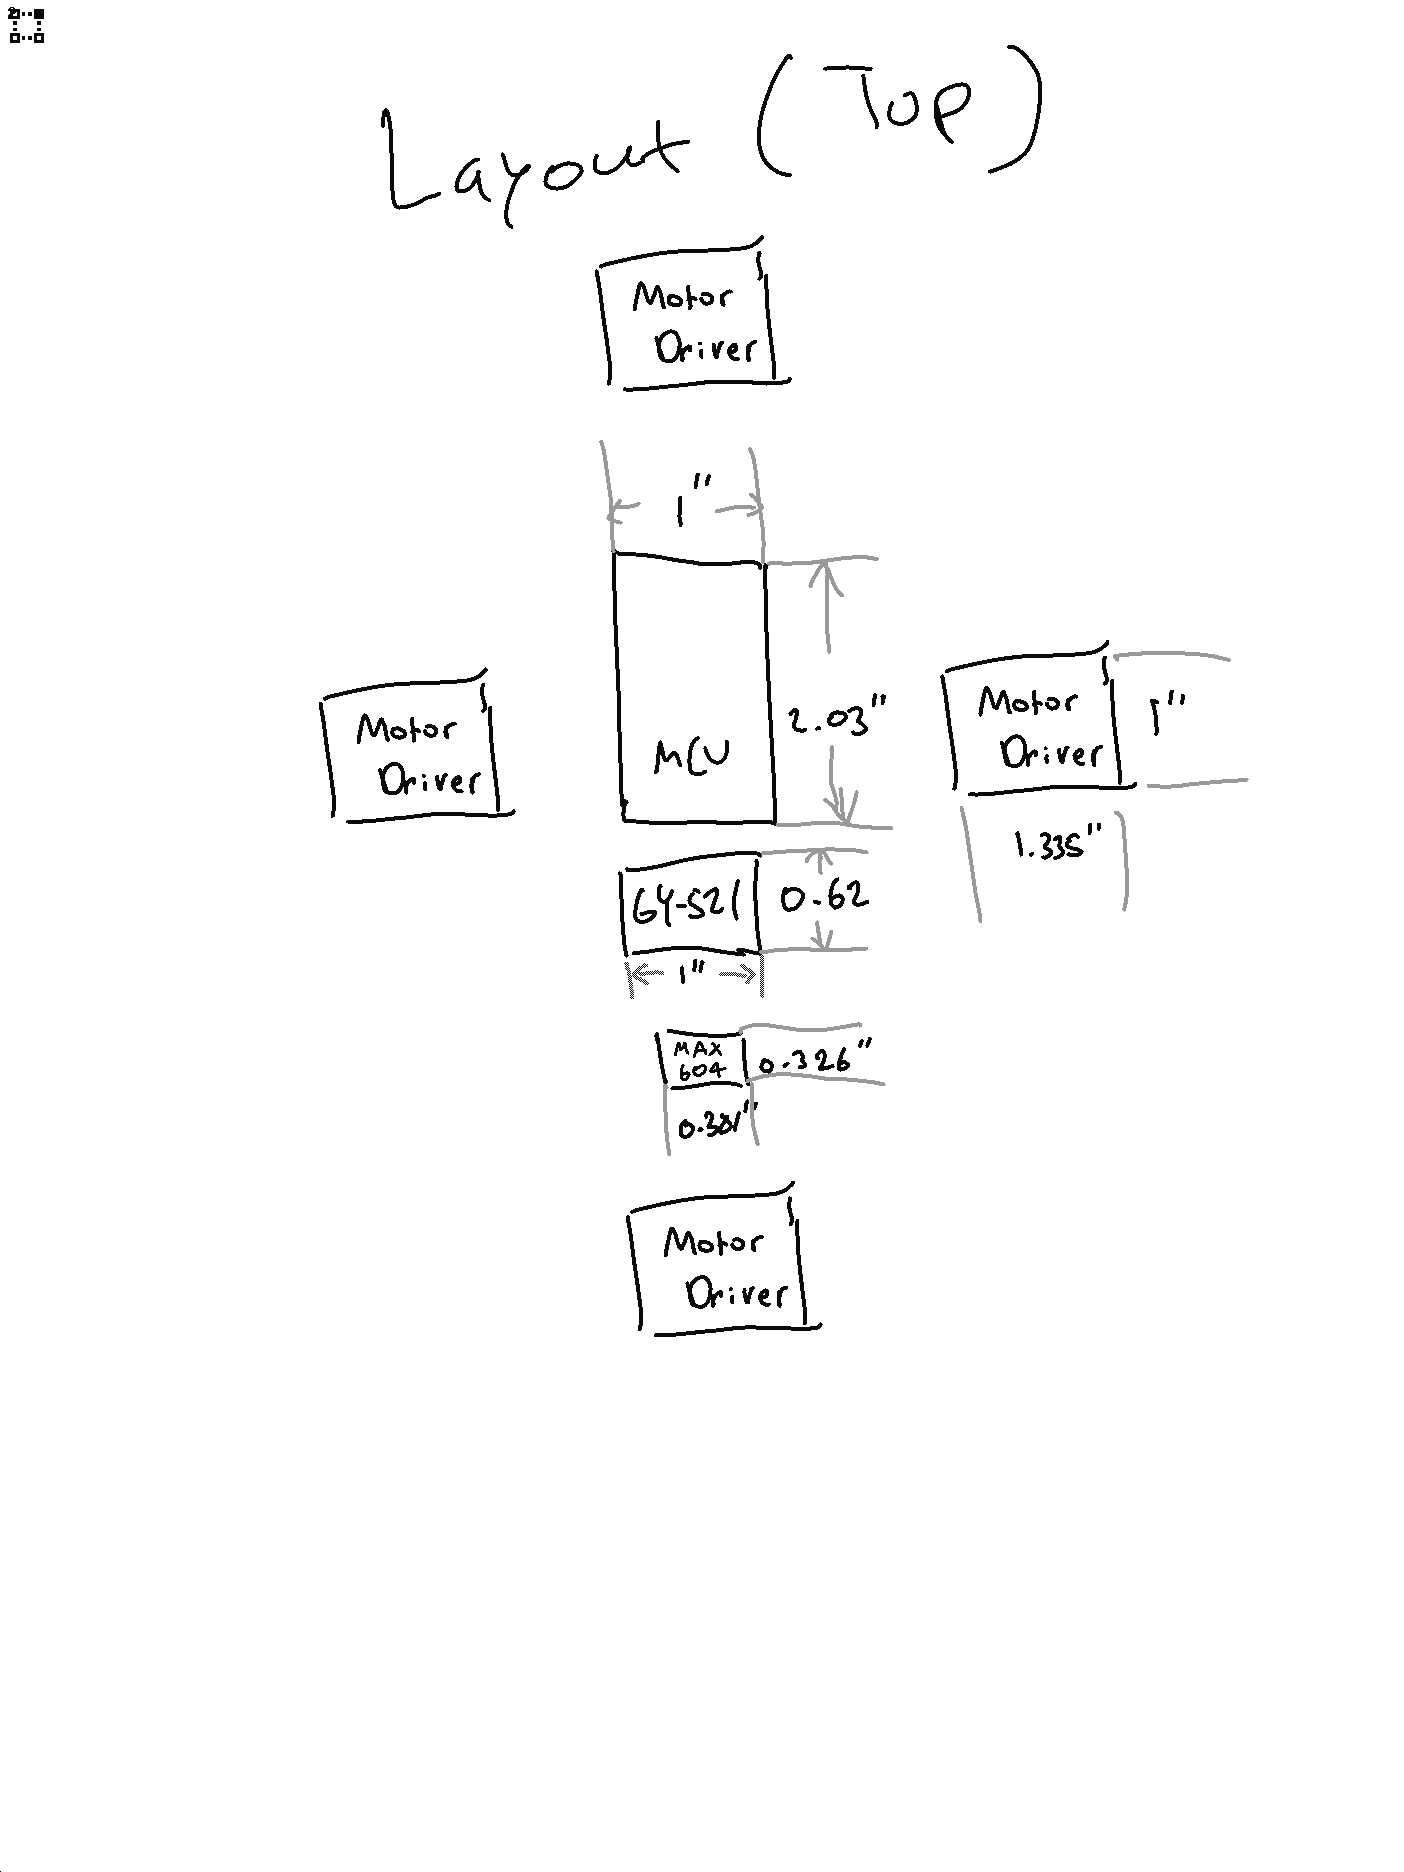 Layout (Top)
Motor
Driver
1"
2.03"
MCU
Motor
Driver
Motor
Driver
1"
1.335"
GY-521
0.62
1"
MAX
604
0.326"
0.381"
Motor
Driver